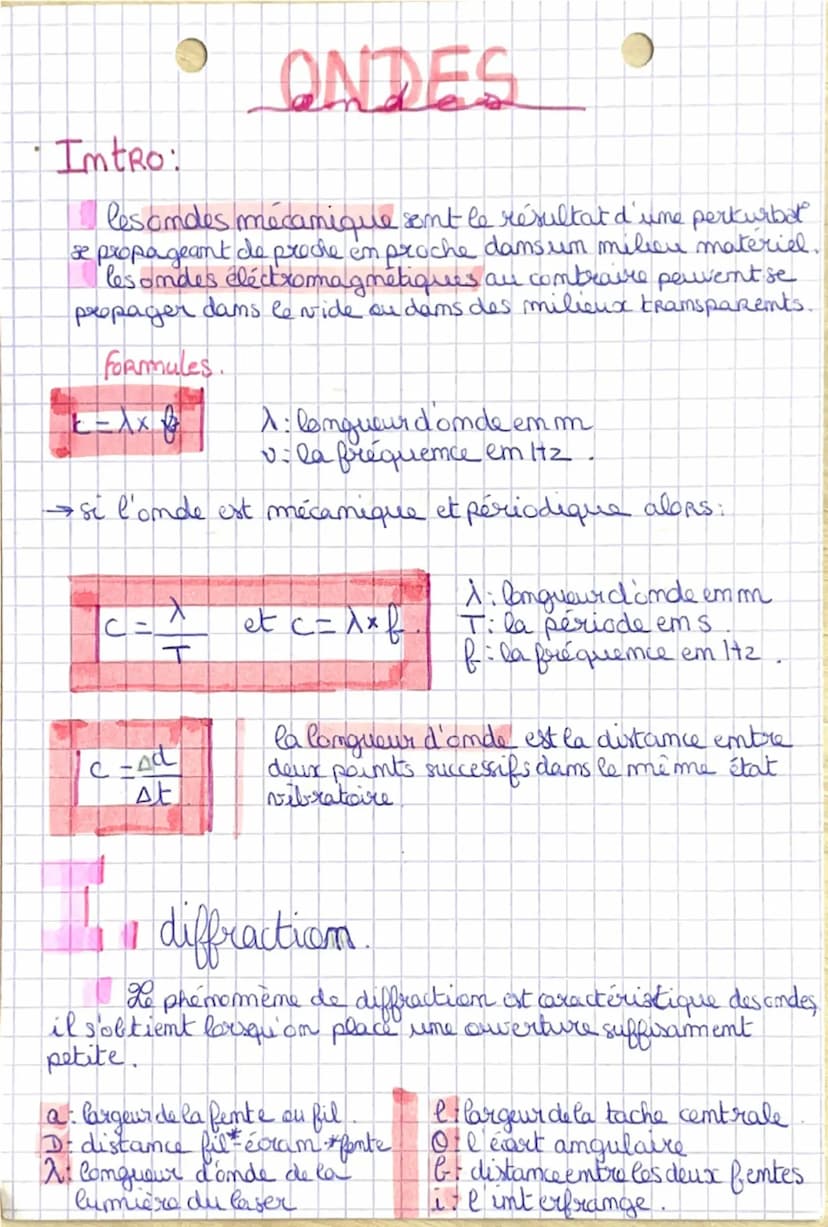 ONDES
ondes
Intro:
les ondes mécanique sont le résultat d'une perturbat°
se propageant de proche en proche dans un milieu matériel.
les ondes éléctromagnétiques au contraire peuvent se
propager dans le vide ou dans des milieux transparents.
formules.
c = λ × f
λ : longueur d'onde en m
ν : la fréquence en Hz .
→ si l'onde est mécanique et périodique alors :
c = λ/T et c = λ × f .
λ : longueur d'onde en m
T : la période en s .
f : la fréquence en Hz .
c = Δd/Δt
la longueur d'onde est la distance entre
deux points successifs dans le même état
vibratoire
I. diffraction.
Le phénomème de diffraction est caractéristique des ondes,
il s'obtient lorsqu'on place une ouverture suffisament
petite.
a : largeur de la fente ou fil .
D : distance fil*-écran *fente
λ : longueur d'onde de la
lumière du laser
l : largeur de la tache centrale .
θ : l'écart angulaire
b : distance entre les deux fentes
i : l'interfrange .